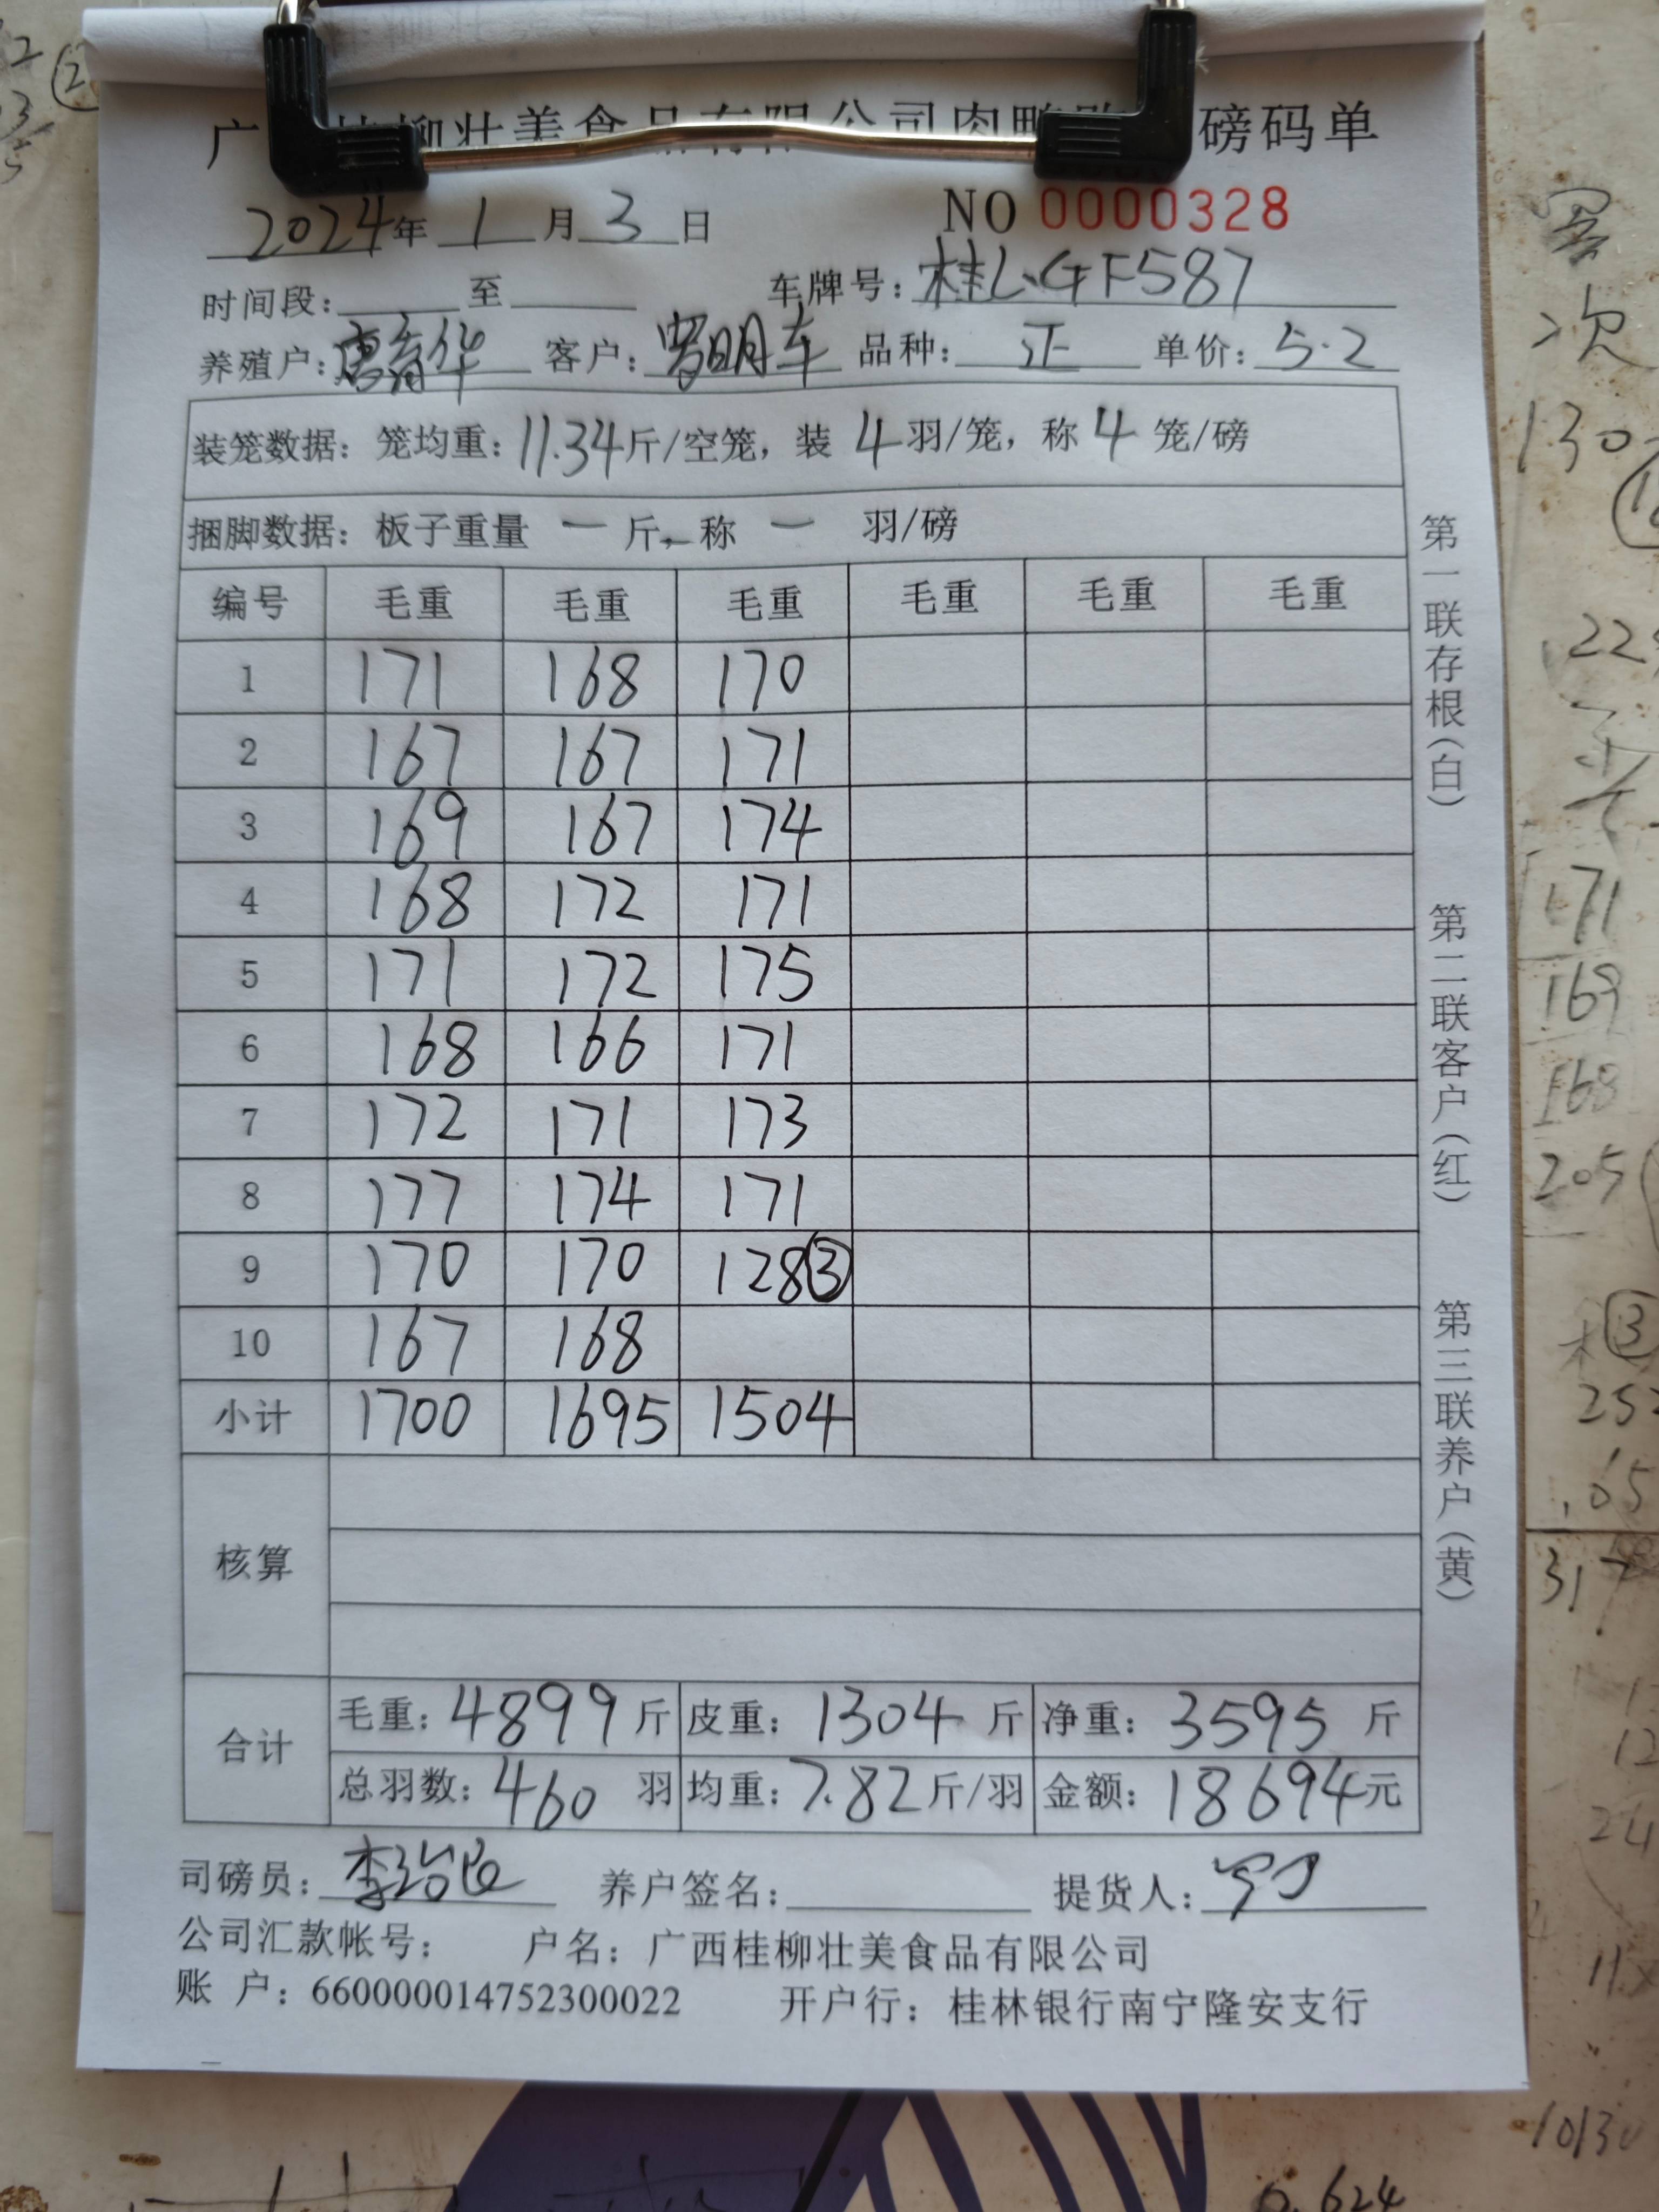 广 柳壮美食品有限公司肉鸭 磅码单
2024年 1 月 3 日 NO 0000328
时间段: 至 车牌号: 桂L·GF587
养殖户: 华 客户: 罗明车 品种: 正 单价: 5.2
装笼数据: 笼均重: 11.34斤/空笼, 装 4 羽/笼, 称 4 笼/磅
捆脚数据: 板子重量 一 斤, 称 一 羽/磅
编号 毛重 毛重 毛重 毛重 毛重 毛重
1 171 168 170
2 167 167 171
3 169 167 174
4 168 172 171
5 171 172 175
6 168 166 171
7 172 171 173
8 177 174 171
9 170 170 128③
10 167 168
小计 1700 1695 1504
核算
合计 毛重: 4899 斤 皮重: 1304 斤 净重: 3595 斤
总羽数: 460 羽 均重: 7.82斤/羽 金额: 18694元
司磅员: 李 养户签名: 提货人:
公司汇款帐号: 户名: 广西桂柳壮美食品有限公司
账 户: 660000014752300022 开户行: 桂林银行南宁隆安支行
第一联存根(白)
第二联客户(红)
第三联养户(黄)
次
130
171
169
168
205
③
0.624